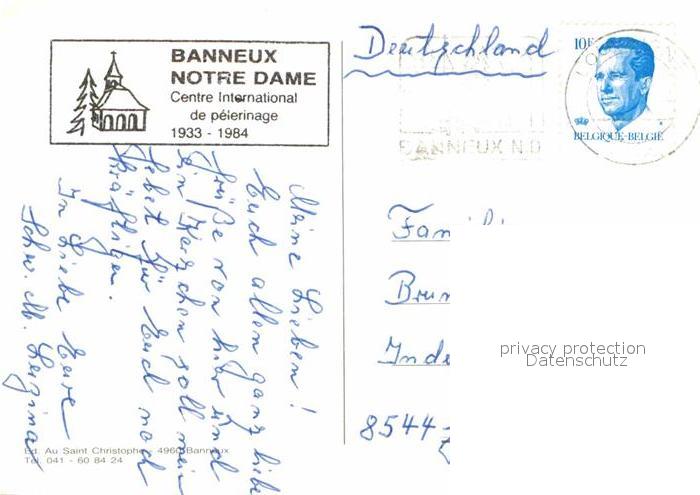 BANNEUX
NOTRE DAME
Centre International
de pélerinage
1933 - 1984
Deutschland
10F
BELGIQUE-BELGIË
BANNEUX N.D.
Meine Lieben!
Euch allen ganz liebe
Grüße von hier und
ein Kerzchen soll mein
Gebet für Euch noch
kräftigen.
In Liebe Eure
Schw. M. Luzina
Fam
D.
Brun
In de
8544-
privacy protection
Datenschutz
Ed. Au Saint Christophe, 4960 Banneux
Tél. 041 - 60 84 24